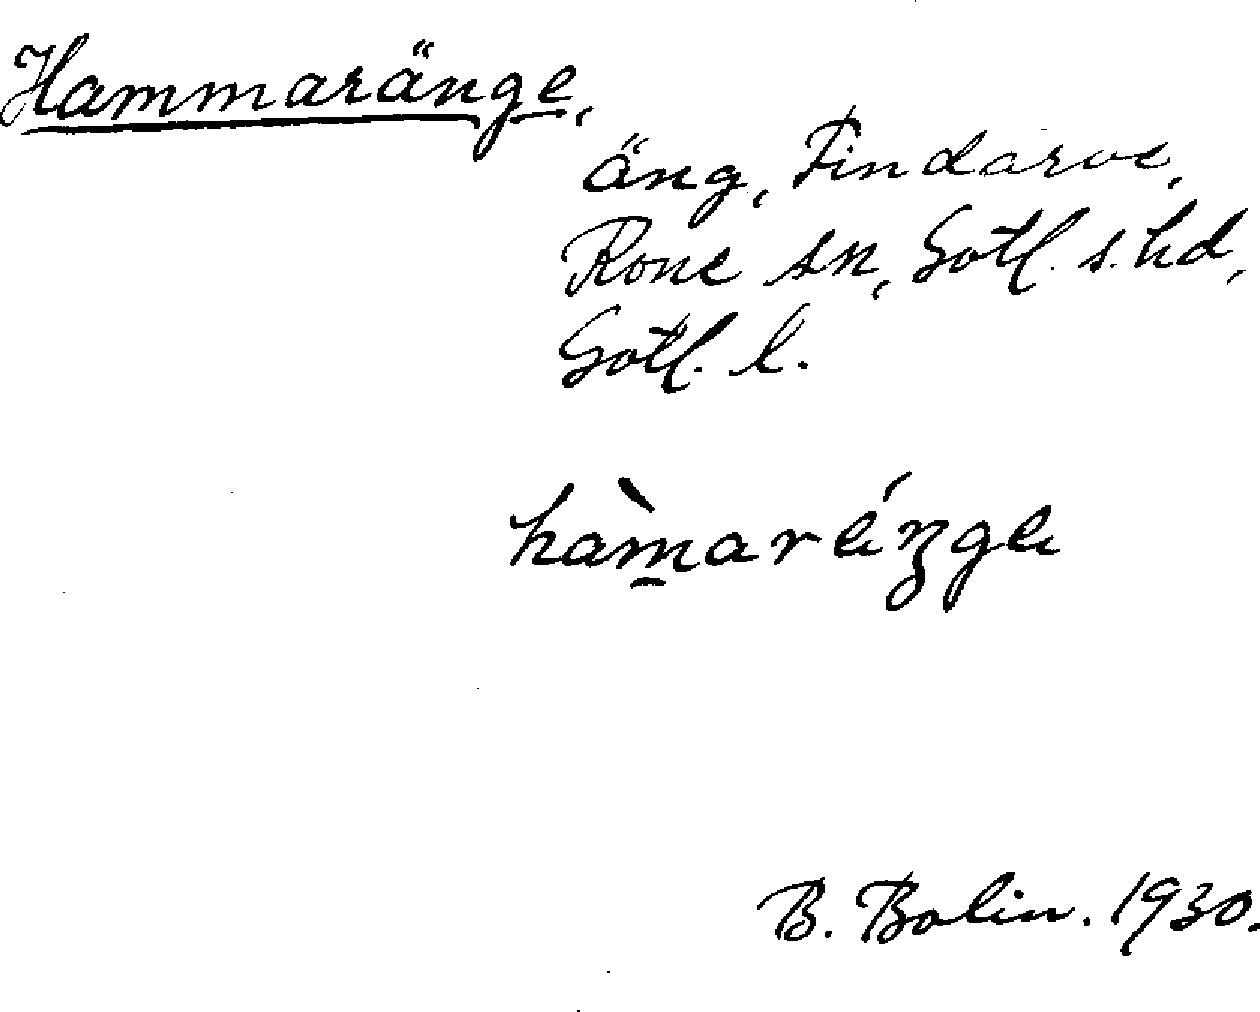 Hammaränge,
äng, Findarve,
Rone sn, Gotl. s. hd,
Gotl. l.
hàm̱aréŋge
B. Bolin. 1930.